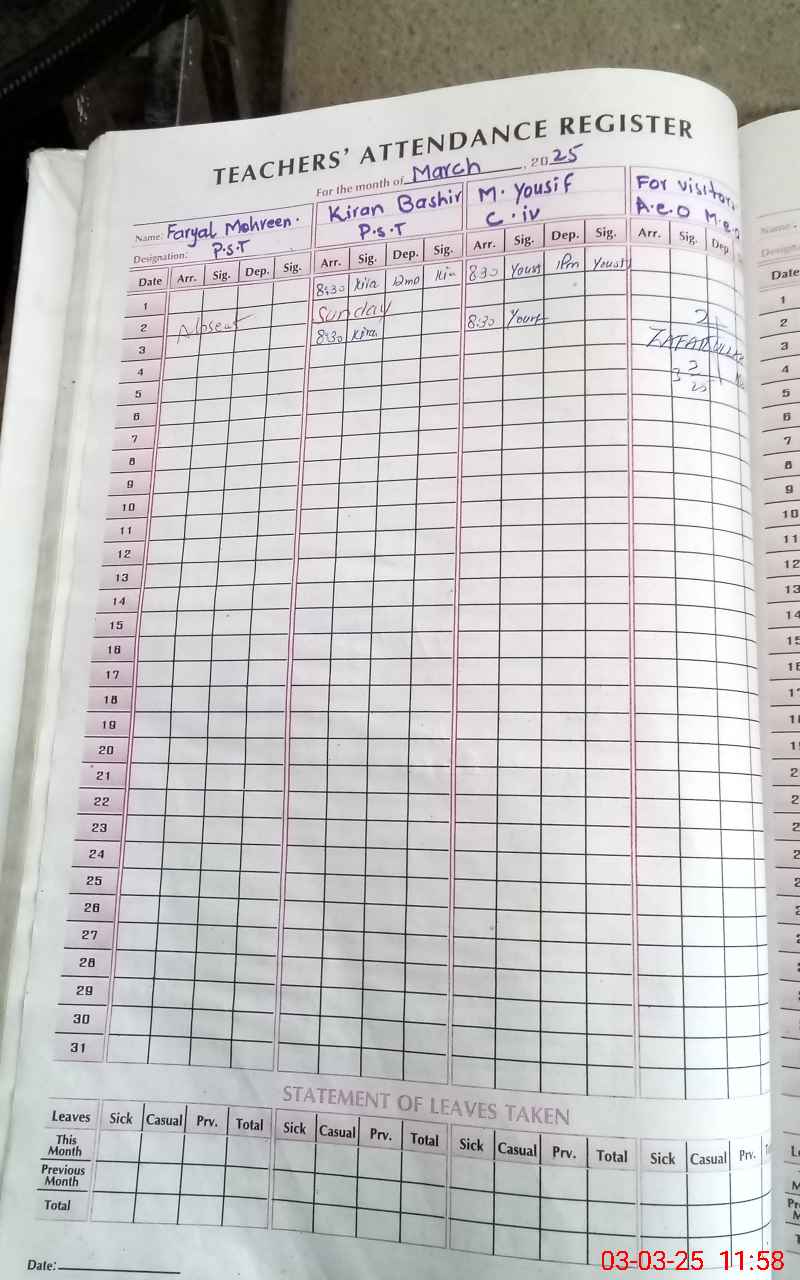 TEACHERS' ATTENDANCE REGISTER
For the month of March, 2025
Name: Faryal Mohreen. Kiran Bashir M. Yousif For visitor,
Designation: P.S.T P.S.T C.iv A.e.O M.e.o
Date Arr. Sig. Dep. Sig. Arr. Sig. Dep. Sig. Arr. Sig. Dep. Sig. Arr. Sig. Dep
1 8:30 Kira 12 8:30 1Pm
2 Sunday
3 Absent 8:30 Kira 8:30
4
5
6
7
8
9
10
11
12
13
14
15
16
17
18
19
20
21
22
23
24
25
26
27
28
29
30
31
STATEMENT OF LEAVES TAKEN
Leaves Sick Casual Prv. Total Sick Casual Prv. Total Sick Casual Prv. Total Sick Casual Prv.
This Month
Previous Month
Total
Date:
Name
Date
1
2
3
4
5
6
7
8
9
10
11
12
13
03-03-25 11:58